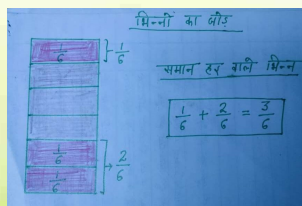 भिन्नों का जोड़
समान हर वाले भिन्न
1/6
1/6
1/6 + 2/6 = 3/6
1/6
1/6
2/6